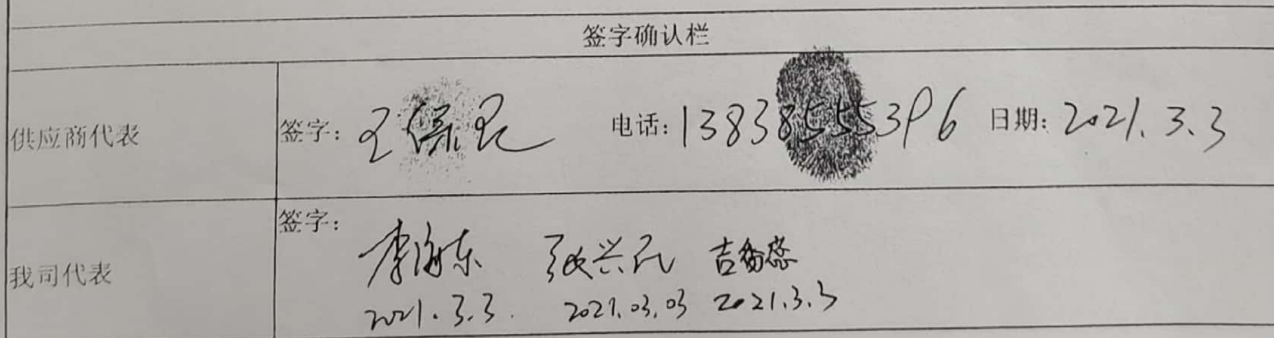 签字确认栏
供应商代表 签字: 王保民 电话:13838555396 日期: 2021.3.3
签字:
我司代表 李海东 张兴民 吉
2021.3.3. 2021.03.03 2021.3.3